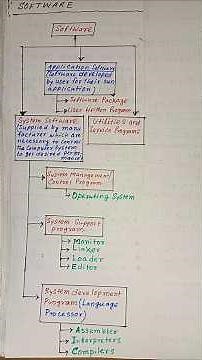 SOFTWARE
Software
Application Software
(Software developed
by user for their own
application)
Software Package
User Written Program
System Software
(Supplied by manu
facturer which are
necessary to control
the Computer System
to get desired Perfor
mance)
Utilities and
Service Programs
System Management
Control Program
Operating System
System Support
program
Monitor
Linker
Loader
Editor
System development
Program (Language
Processor)
Assembler
Interpreters
Compilers